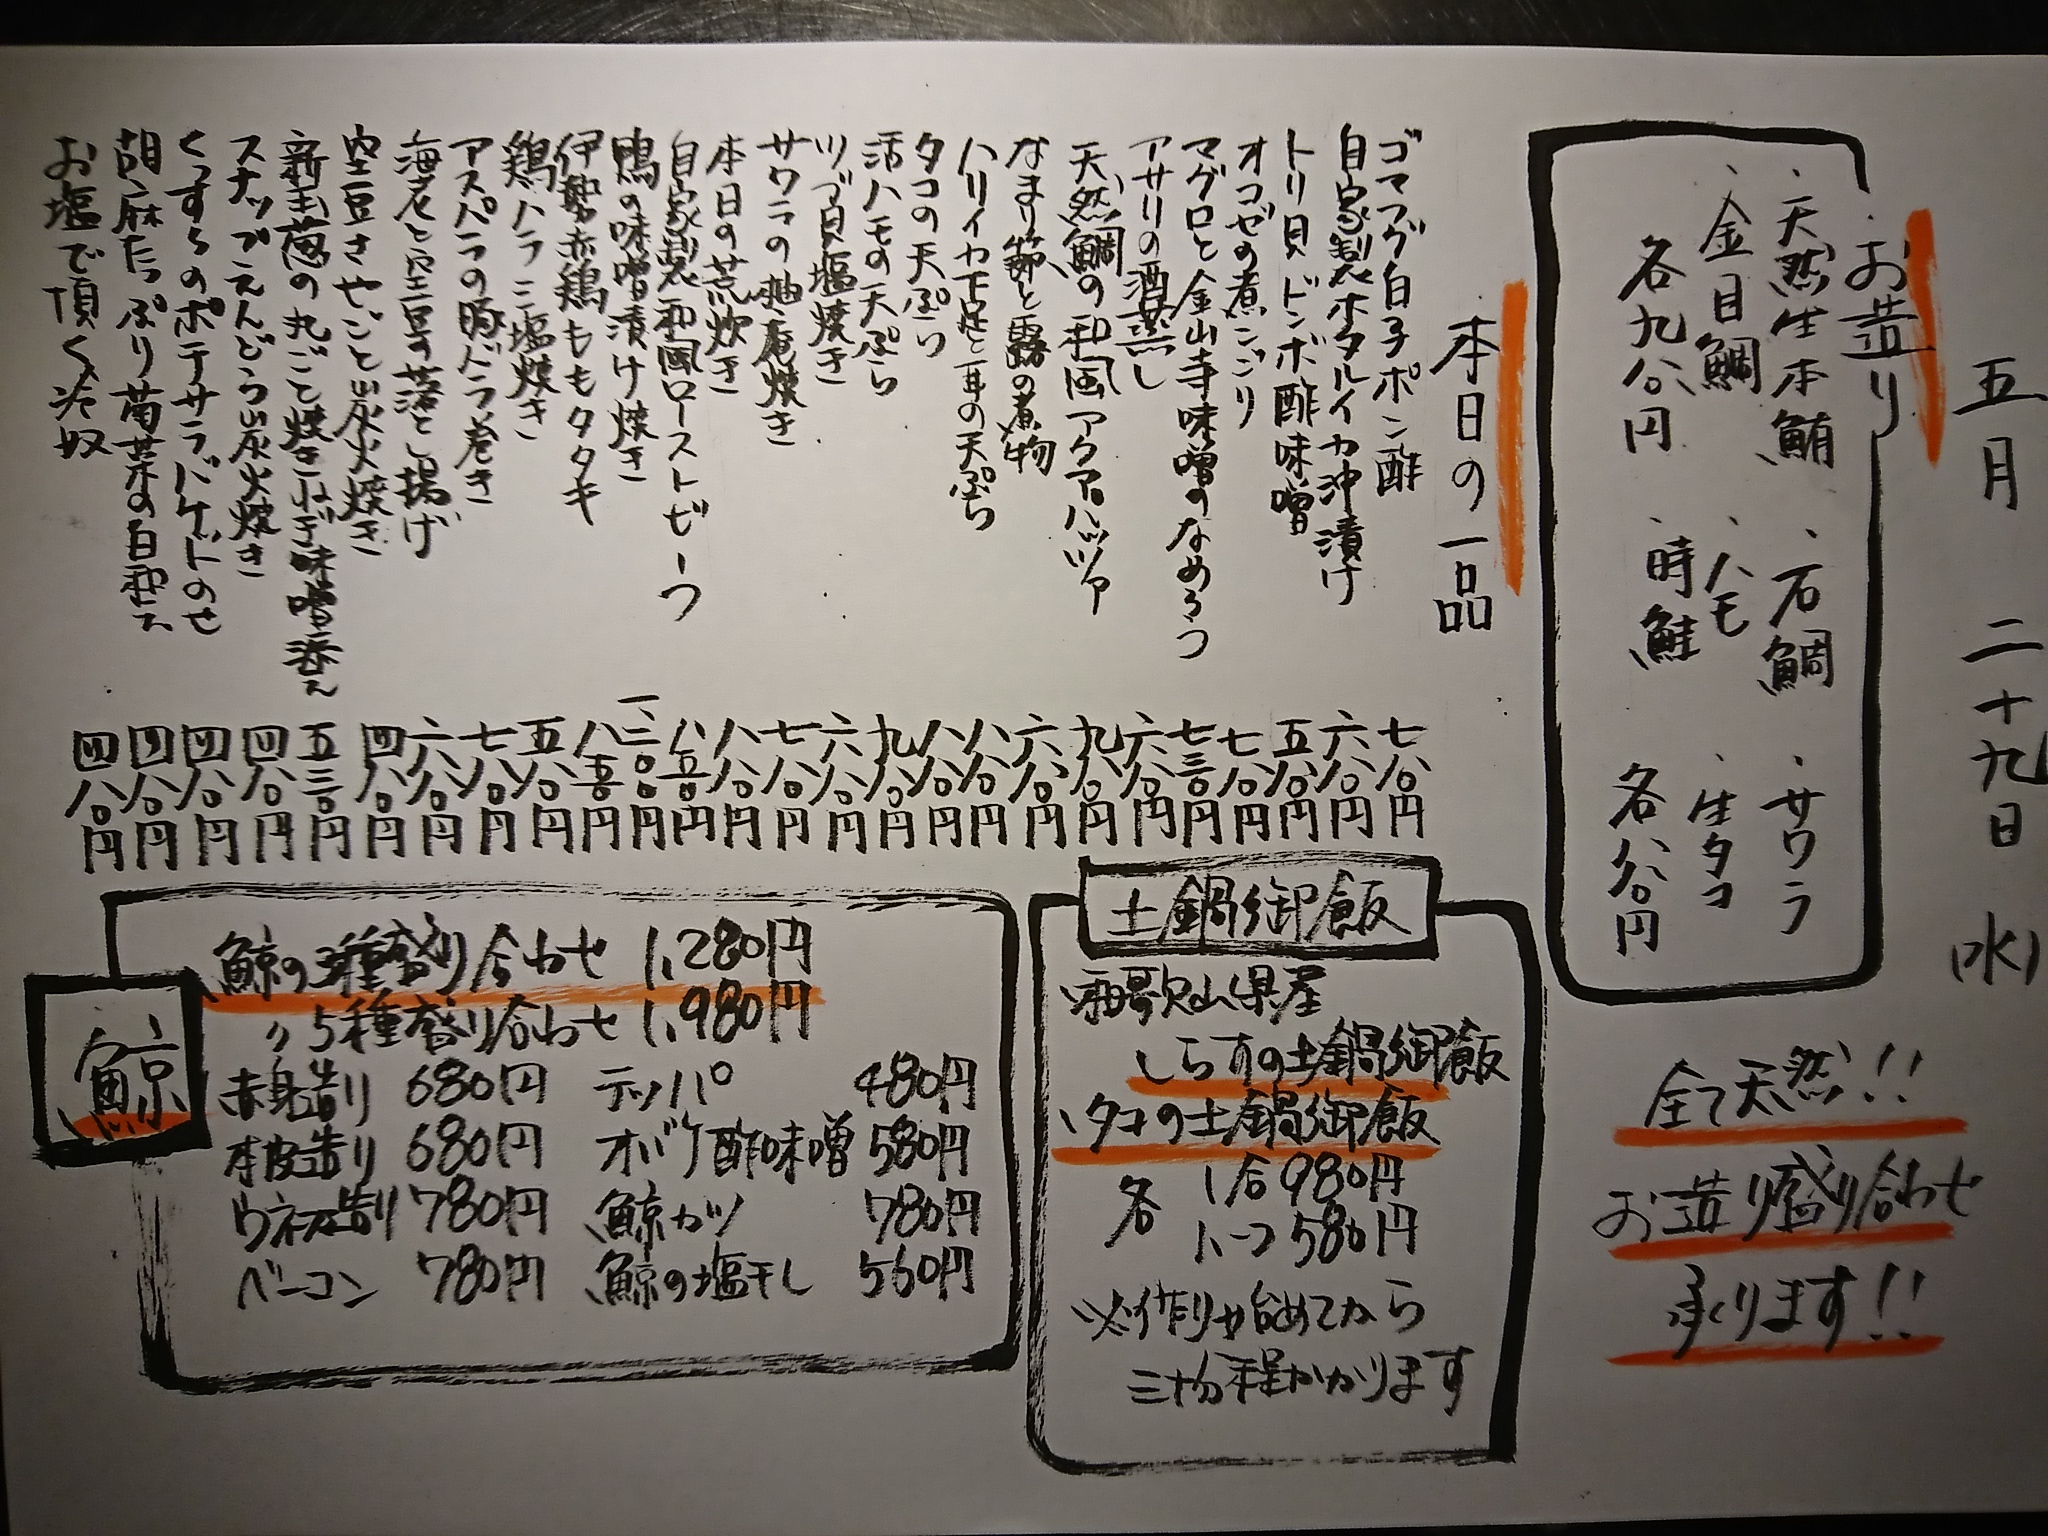 五月 二十九日 (水)
お造り
・天然生本鮪 ・石鯛 ・サワラ
・金目鯛 ・ハモ ・生タコ
各九八〇円 ・時鮭 各八八〇円
全て天然!!
お造り盛り合わせ
承ります!!
本日の一品
ゴマフグ白子ポン酢 七八〇円
自家製ホタルイカ沖漬け 六八〇円
トリ貝ドンボ酢味噌 五八〇円
オコゼの煮こごり 七八〇円
マグロと金山寺味噌のなめろう 七三〇円
アサリの酒蒸し 六八〇円
天然鯛の和風アクアパッツァ 九八〇円
なまり節と蕗の煮物 六八〇円
ハリイカ下足と耳の天ぷら 八八〇円
タコの天ぷら 八八〇円
活ハモの天ぷら 九八〇円
ツブ貝塩焼き 六八〇円
サワラの柚庵焼き 七八〇円
本日の荒炊き 八八〇円
自家製和風ローストビーフ 八五〇円
鴨の味噌漬け焼き 一、三〇〇円
伊勢赤鶏ももタタキ 八五〇円
鶏ハラミ塩焼き 五八〇円
アスパラの豚バラ巻き 七八〇円
海老と空豆の落とし揚げ 六八〇円
空豆さやごと炭火焼き 四八〇円
新玉葱の丸ごと焼きねぎ味噌添え 五三〇円
スナップえんどう炭火焼き 四八〇円
くんすらのポテサラバケットのせ 四八〇円
胡麻たっぷり菊菜の白和え 四八〇円
お塩で頂く冷奴 四八〇円
土鍋御飯
和歌山県産
しらすの土鍋御飯
、タコの土鍋御飯
各 1合980円
ハーフ580円
※作り始めてから
三十分程かかります
鯨
鯨の3種盛り合わせ 1,280円
〃5種盛り合わせ 1,980円
赤身造り 680円 テッパ 480円
本皮造り 680円 オバケ酢味噌 580円
ウネス造り 780円 鯨カツ 780円
ベーコン 780円 鯨の塩干し 560円